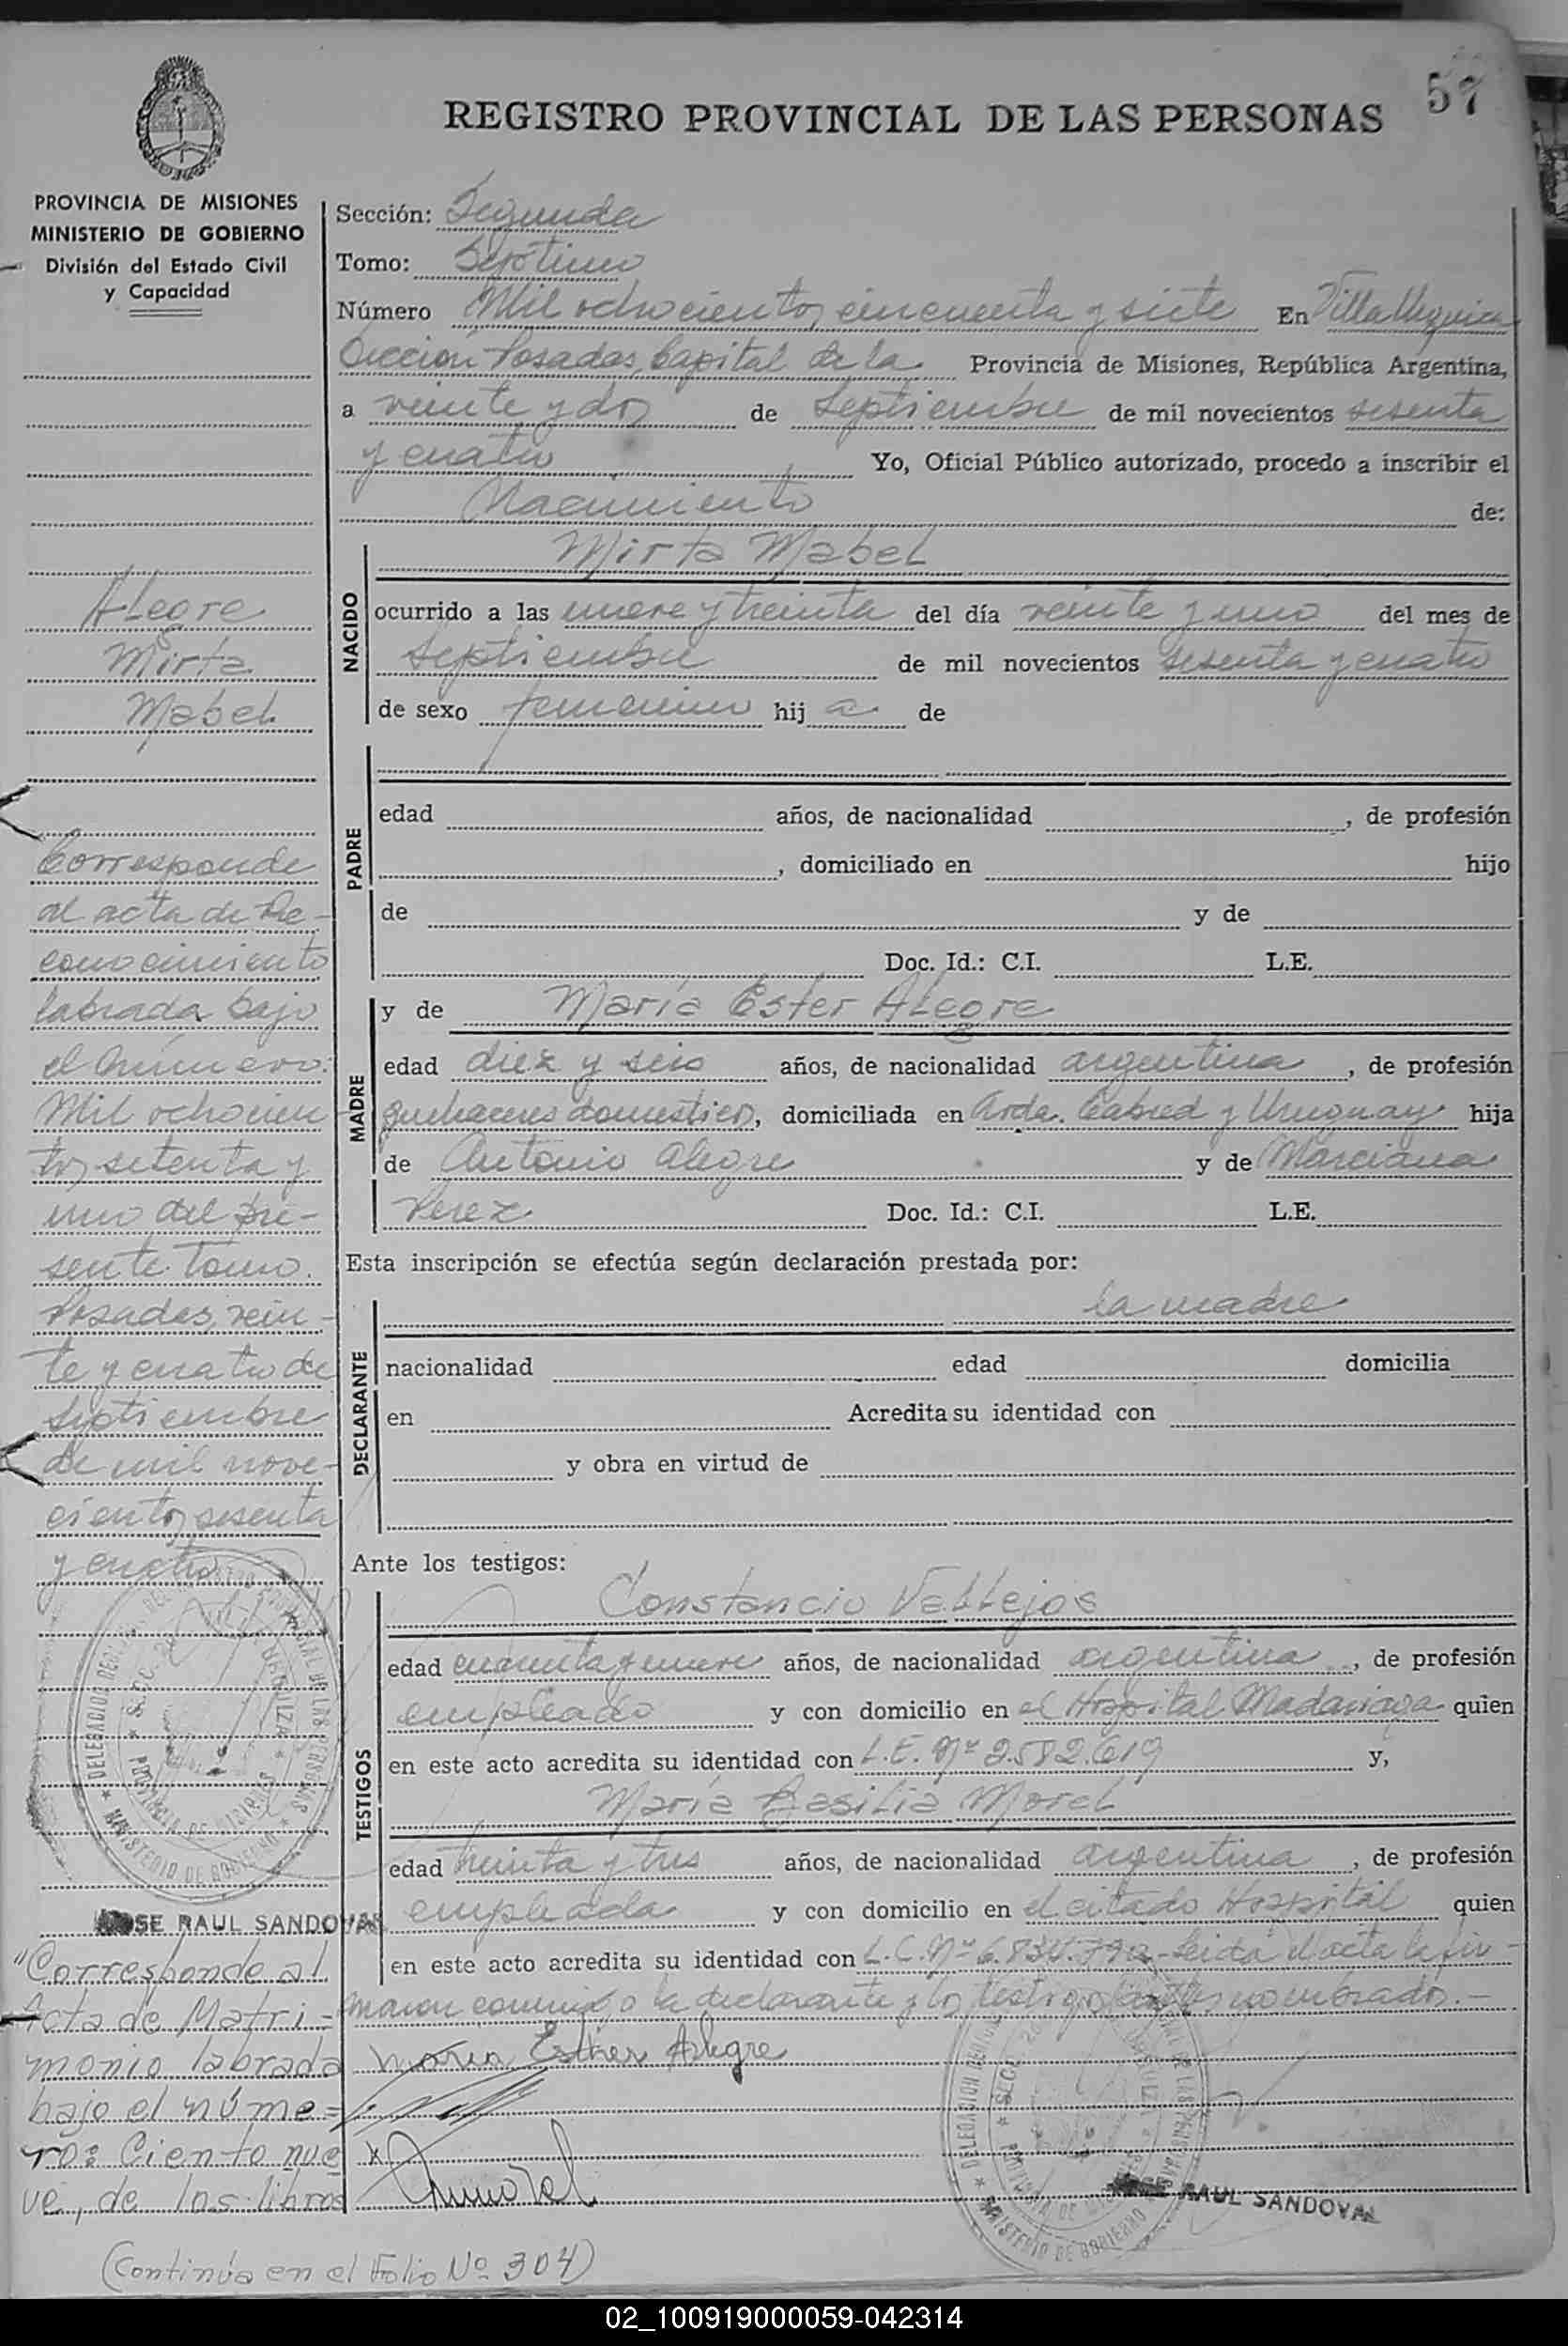 57
REGISTRO PROVINCIAL DE LAS PERSONAS
PROVINCIA DE MISIONES
MINISTERIO DE GOBIERNO
División del Estado Civil
y Capacidad
Alegre
Mirta
Mabel
Corresponde
al acta de Re-
conocimiento
labrada bajo
el número:
Mil ochocien-
tos setenta y
uno del pre-
sente Tomo.
Posadas, vein-
te y cuatro de
septiembre
de mil nove-
cientos sesenta
y cuatro
JOSE RAUL SANDOVAL
"Corresponde al
Acta de Matri=
monio labrada
bajo el núme=
ro: Ciento nue
ve, de los libros
(Continúa en el Folio Nº 304)
Sección: Segunda
Tomo: Septimo
Número Mil ochocientos cincuenta y siete En Villa Urquiza
Sección Posadas, Capital de la Provincia de Misiones, República Argentina,
a veinte y dos de Septiembre de mil novecientos sesenta
y cuatro Yo, Oficial Público autorizado, procedo a inscribir el
Nacimiento de:
NACIDO
Mirta Mabel
ocurrido a las nueve y treinta del día veinte y uno del mes de
septiembre de mil novecientos sesenta y cuatro
de sexo femenino hij a de
PADRE
edad años, de nacionalidad , de profesión
, domiciliado en hijo
de y de
Doc. Id.: C.I. L.E.
MADRE
y de María Ester Alegre
edad diez y seis años, de nacionalidad argentina , de profesión
quehaceres domesticos, domiciliada en Avda. Cabred y Uruguay hija
de Antonio Alegre y de Marciana
Perez Doc. Id.: C.I. L.E.
Esta inscripción se efectúa según declaración prestada por:
DECLARANTE
la madre
nacionalidad edad domicilia
en Acredita su identidad con
y obra en virtud de
Ante los testigos:
TESTIGOS
Constancio Vallejos
edad cuarenta y nueve años, de nacionalidad argentina , de profesión
empleado y con domicilio en el Hospital Madariaga quien
en este acto acredita su identidad con L.E. Nº 2.582.619 y,
María Basilia Morel
edad treinta y tres años, de nacionalidad argentina , de profesión
empleada y con domicilio en el citado Hospital quien
en este acto acredita su identidad con L.C. Nº Leida el acta la fir-
maron conmigo la declarante y los testigos antes nombrados.-
Maria Esther Alegre
JOSE RAUL SANDOVAL
02_100919000059-042314